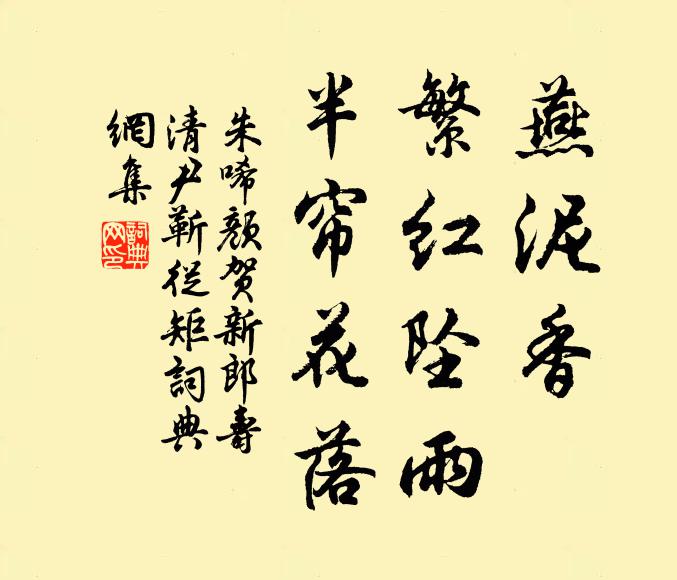 燕泥香
繁红坠雨
半帘花落
朱唏颜贺新郎寿
清尹靳從矩詞典
網集
詞典
网印